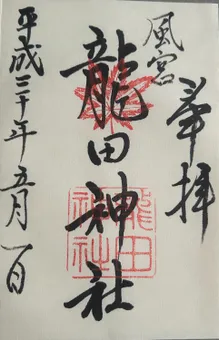 奉拝
風宮
龍田神社
平成三十年五月一日
龍田
神社